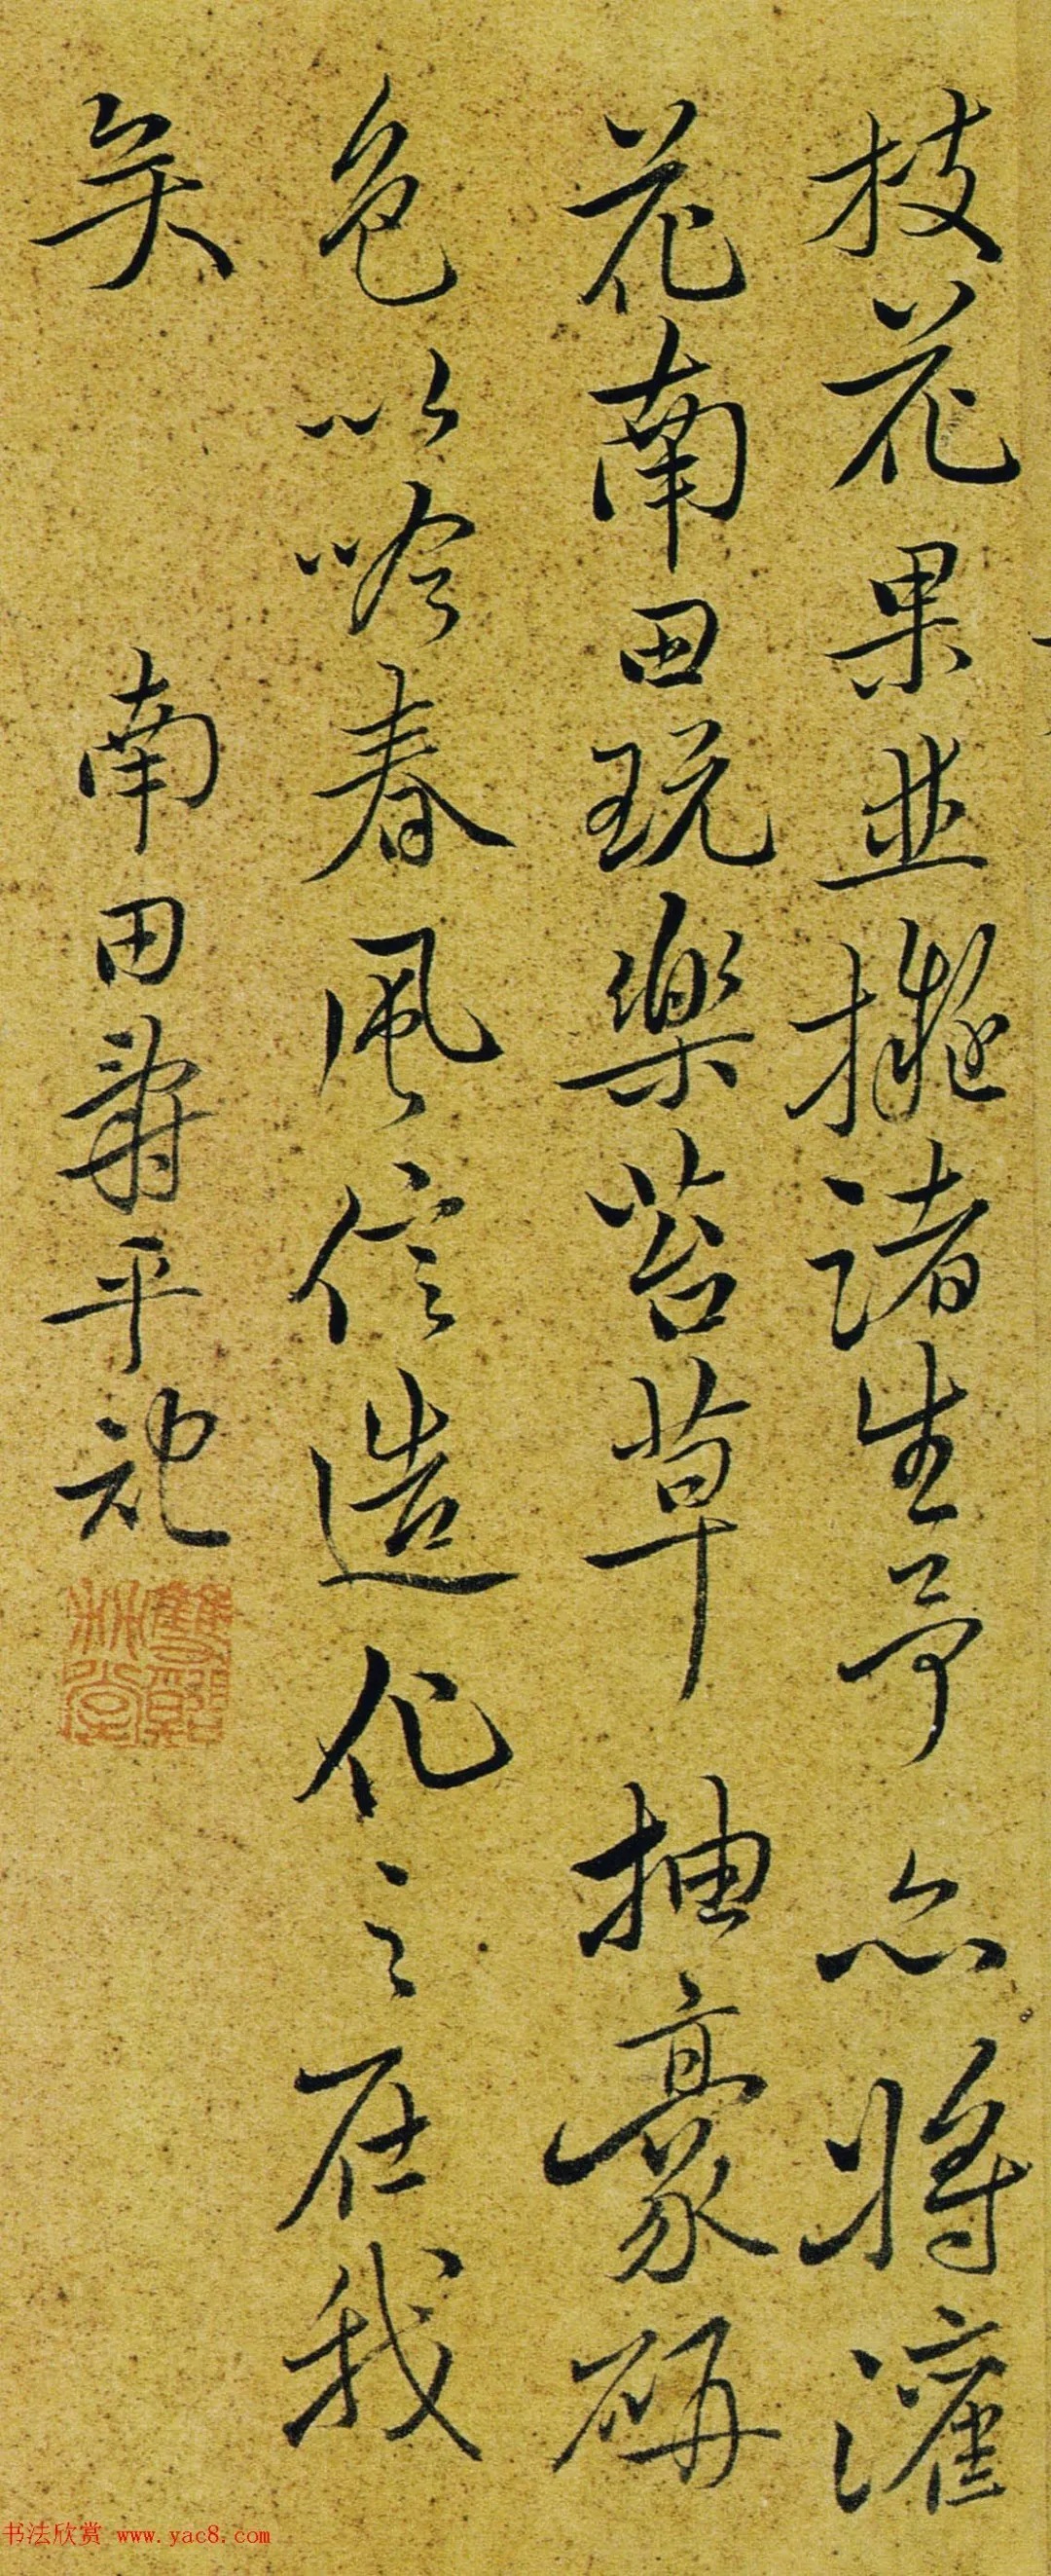 枝花果並擬諸生亭亦將灌
花南田玩樂苔草抽豪研
色以吟春風信造化之在我
矣
南田壽平記
书法欣赏 www.yac8.com